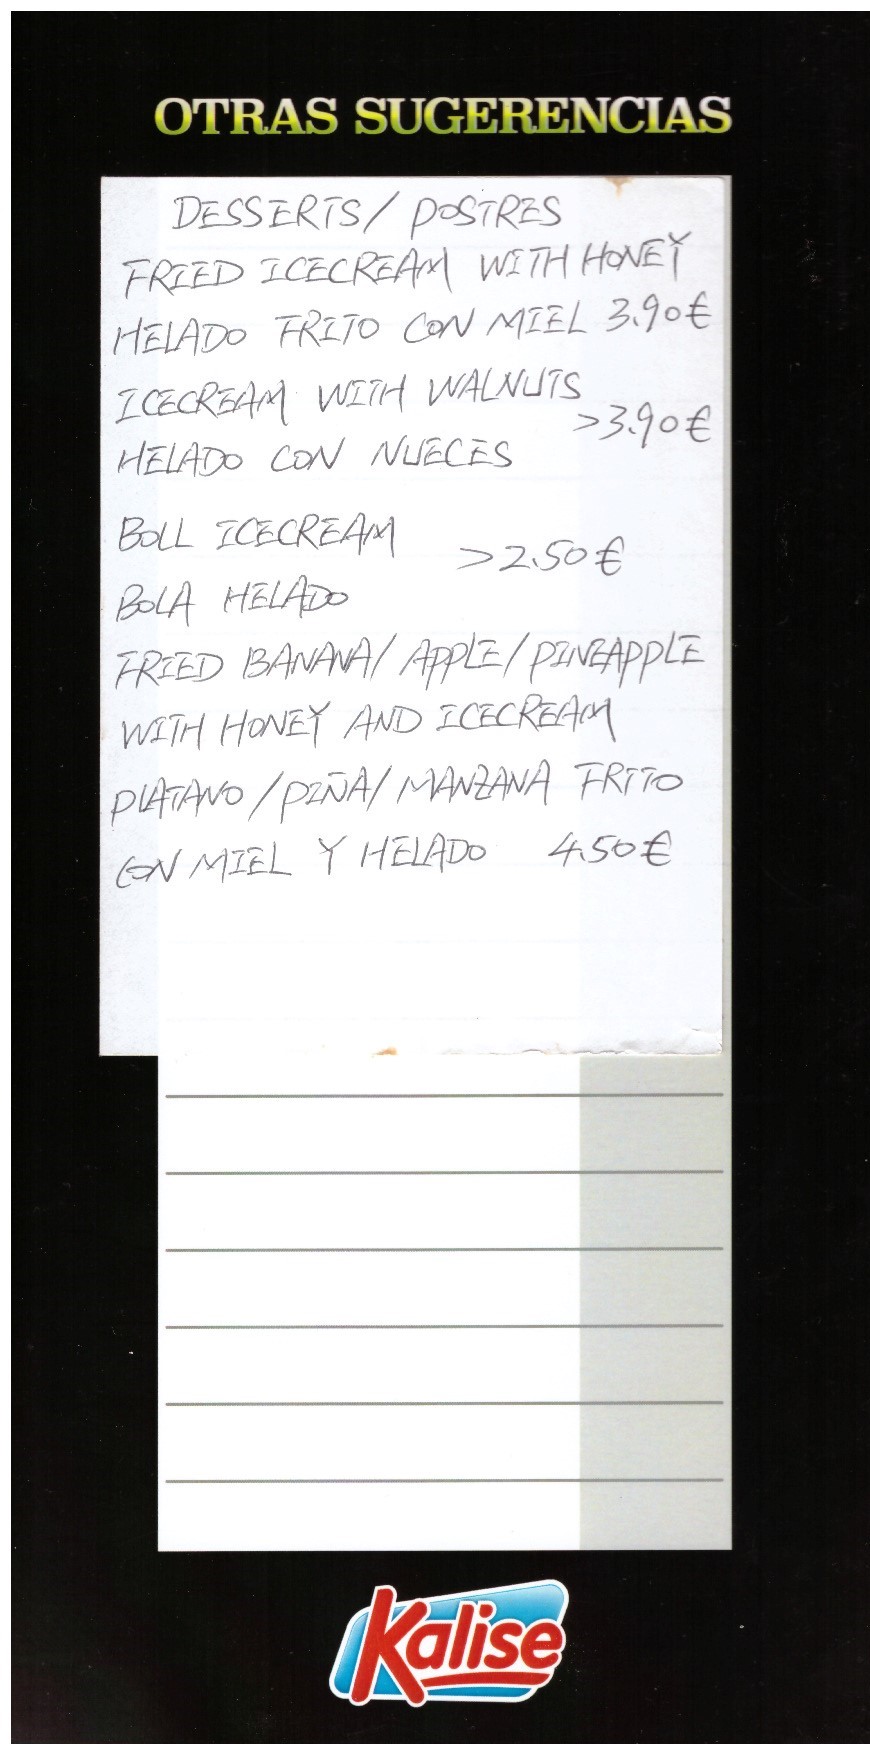 OTRAS SUGERENCIAS
DESSERTS / POSTRES
FRIED ICECREAM WITH HONEY
HELADO FRITO CON MIEL 3.90€
ICECREAM WITH WALNUTS
>3.90€
HELADO CON NUECES
BOLL ICECREAM
>2.50€
BOLA HELADO
FRIED BANANA/ APPLE/ PINEAPPLE
WITH HONEY AND ICECREAM
PLATANO / PIÑA/ MANZANA FRITO
CON MIEL Y HELADO 4.50€
Kalise